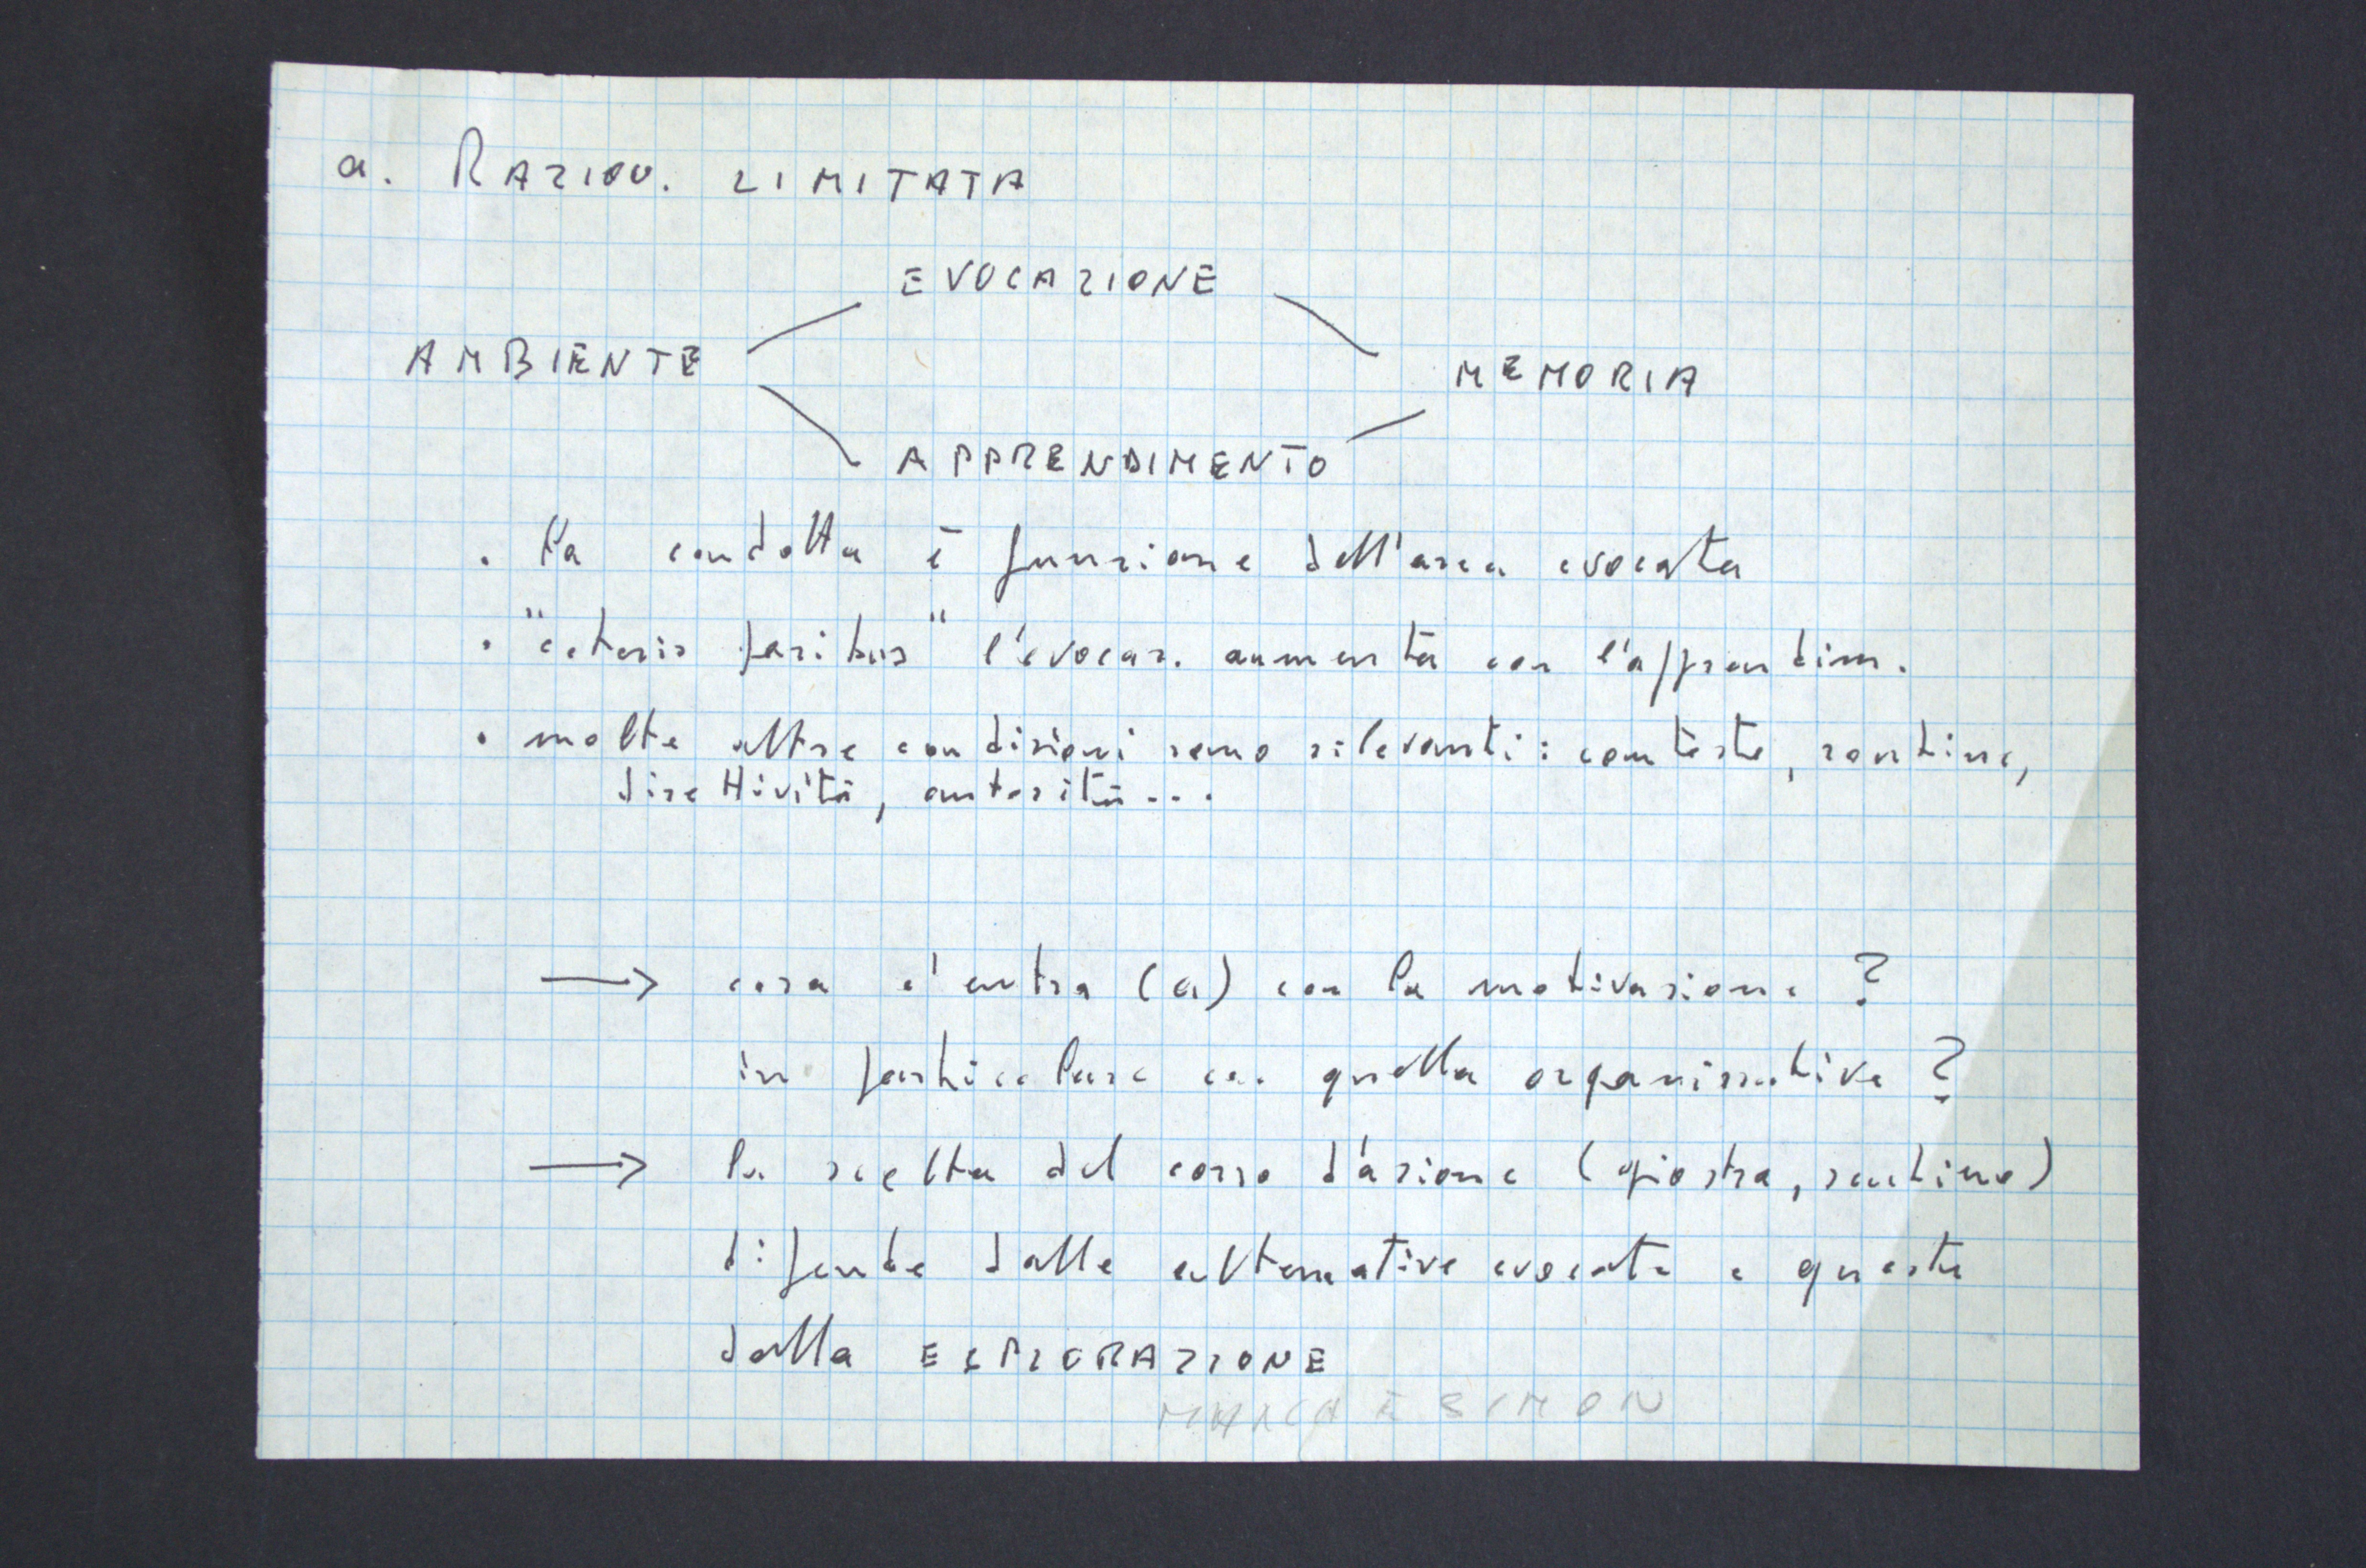 a. RAZION. LIMITATA
EVOCAZIONE
AMBIENTE
MEMORIA
APPRENDIMENTO
. la condotta è funzione dell'area evocata
. "ceteris paribus" l'evocaz. aumenta con l'apprendim.
. molte altre condizioni sono rilevanti: contesto, routine,
direttività, autorità...
→ cosa c'entra (a) con la motivazione ?
in particolare con quella organizzativa ?
→ la scelta del corso d'azione (giostra, )
dipende dalle alternative evocate e queste
dalla ESPLORAZIONE
MARCH E SIMON